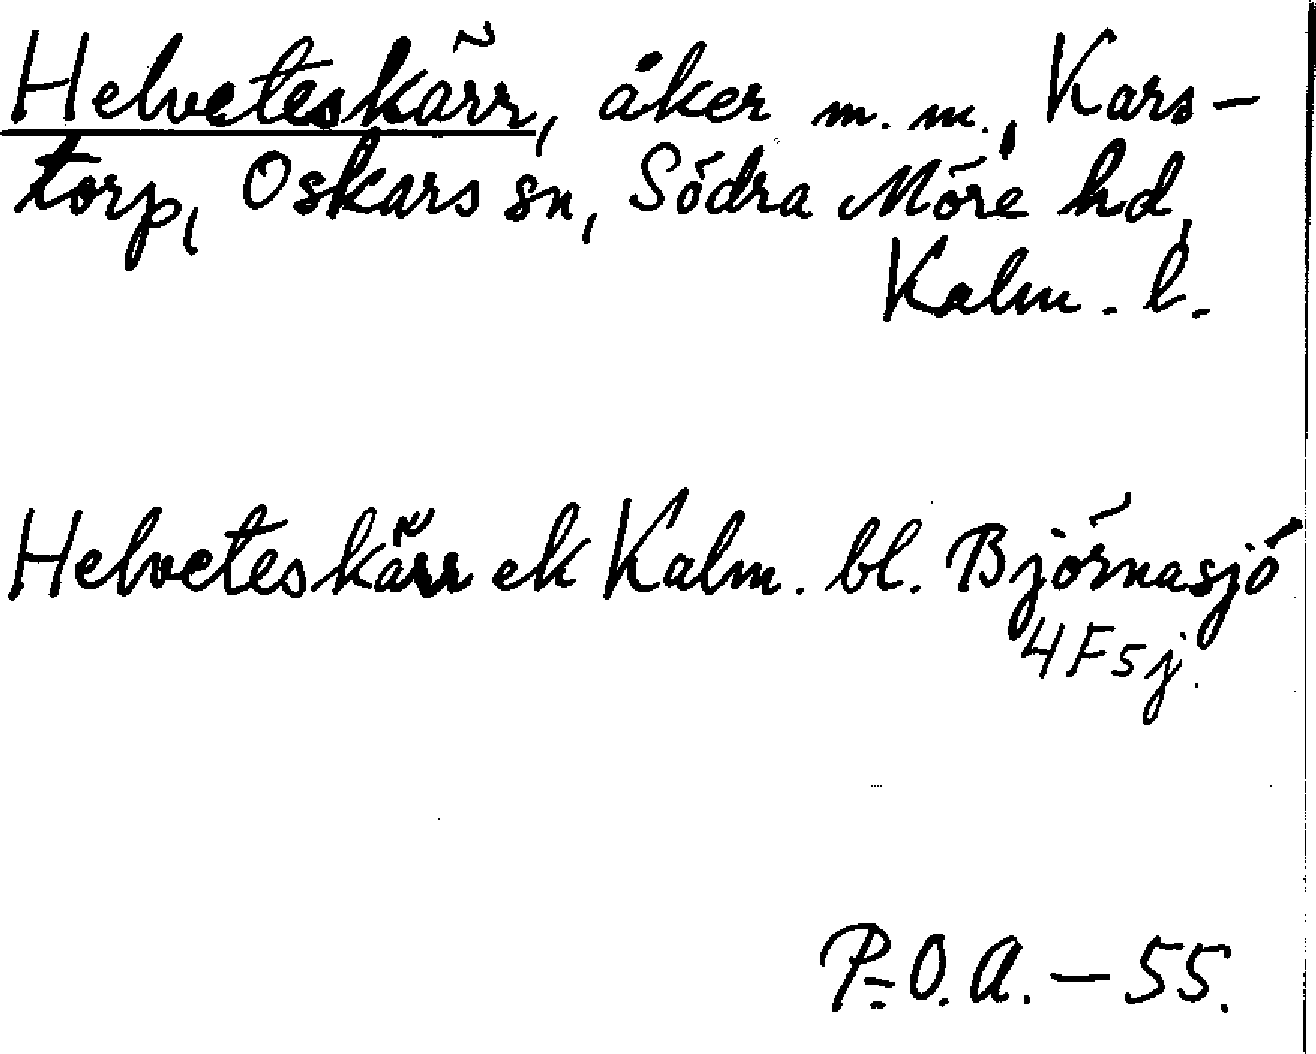 Helveteskärr, åker m.m., Kars-
torp, Oskars sn, Södra Möre hd,
Kalm. l.
Helveteskärr ek Kalm. bl. Björnasjö
4F5j.
P.-O.A. — 55.